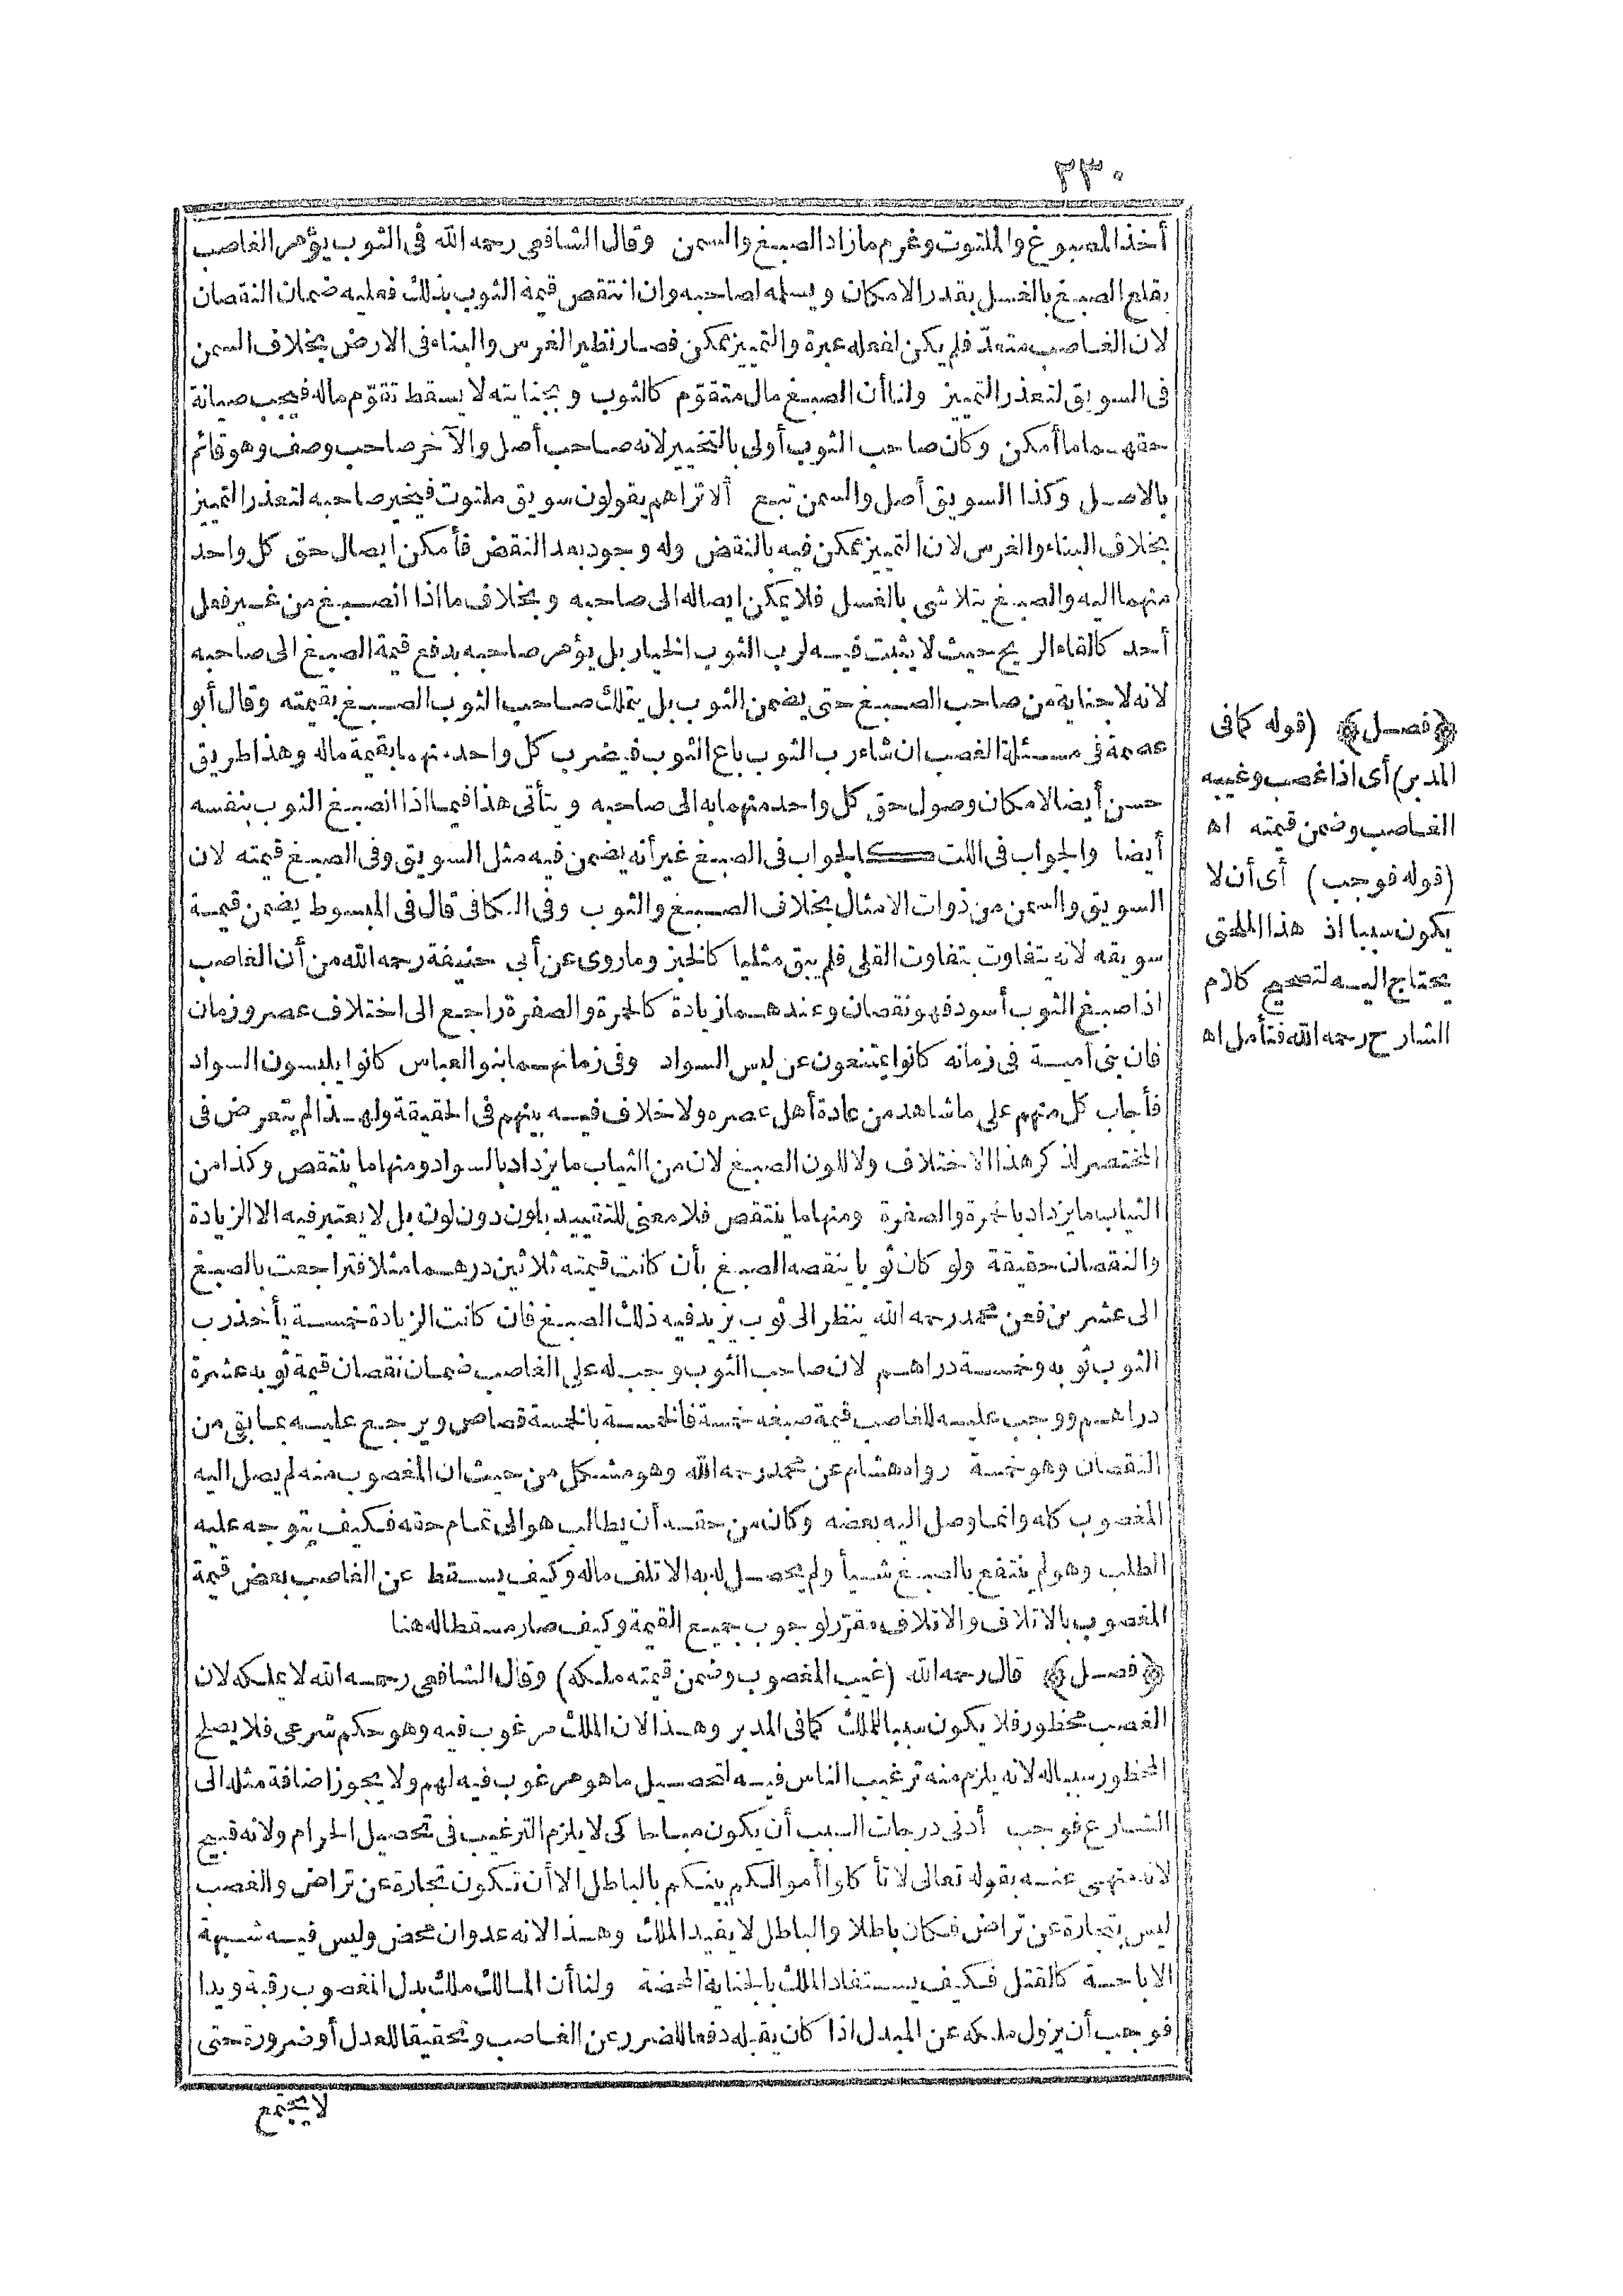 ٢٣٠
أخذ المصبوغ والملتوت وغرم ما زاد الصبغ والسمن وقال الشافعى رحمه الله فى الثوب يؤمر الغاصب
بقلع الصبغ بالغسل بقدر الامكان ويسلمه لصاحبه وان انتقص قيمة الثوب بذلك فعليه ضمان النقصان
لان الغاصب متعدّ فلم يكن لفعله عبرة والتمييز ممكن فصار نظير الغرس والبناء فى الارض بخلاف السمن
فى السويق لتعذر التمييز ولنا أن الصبغ مال متقوّم كالثوب وبجنايته لا يسقط تقوّم ماله فيجب صيانة
حقهما ما أمكن وكان صاحب الثوب أولى بالتخيير لانه صاحب أصل والآخر صاحب وصف وهو قائم
بالاصل وكذا السويق أصل والسمن تبع ألا تراهم يقولون سويق ملتوت فيخير صاحبه لتعذر التمييز
بخلاف البناء والغرس لان التمييز ممكن فيه بالنقض وله وجود بعد النقض فأمكن ايصال حق كل واحد
منهما اليه والصبغ يتلاشى بالغسل فلا يمكن ايصاله الى صاحبه وبخلاف ما اذا انصبغ من غير فعل
أحد كالقاء الريح حيث لا يثبت فيه لرب الثوب الخيار بل يؤمر صاحبه بدفع قيمة الصبغ الى صاحبه
لانه لا جناية من صاحب الصبغ حتى يضمن الثوب بل يتملك صاحب الثوب الصبغ بقيمته وقال أبو
عصمة فى مسئلة الغصب ان شاء رب الثوب باع الثوب فيضرب كل واحد منهما بقيمة ماله وهذا طريق
حسن أيضا لامكان وصول حق كل واحد منهما به الى صاحبه ويتأتى هذا فيما اذا انصبغ الثوب بنفسه
أيضا والجواب فى اللت كالجواب فى الصبغ غير أنه يضمن فيه مثل السويق وفى الصبغ قيمته لان
السويق والسمن من ذوات الامثال بخلاف الصبغ والثوب وفى الكافى قال فى المبسوط يضمن قيمة
سويقه لانه يتفاوت بتفاوت القلى فلم يبق مثليا كالخبز وما روى عن أبى حنيفة رحمه الله من أن الغاصب
اذا صبغ الثوب أسود فهو نقصان وعندهما زيادة كالحمرة والصفرة راجع الى اختلاف عصر وزمان
فان بنى أمية فى زمانه كانوا يمتنعون عن لبس السواد وفى زمانهما بنو العباس كانوا يلبسون السواد
فأجاب كل منهم على ما شاهد من عادة أهل عصره ولا خلاف فيه بينهم فى الحقيقة ولهذا لم يتعرض فى
المختصر لذكر هذا الاختلاف ولا للون الصبغ لان من الثياب ما يزداد بالسواد ومنها ما ينتقص وكذا من
الثياب ما يزداد بالحمرة والصفرة ومنها ما ينتقص فلا معنى للتقييد بلون دون لون بل لا يعتبر فيه الا الزيادة
والنقصان حقيقة ولو كان ثوبا ينقصه الصبغ بأن كانت قيمته ثلاثين درهما مثلا فتراجعت بالصبغ
الى عشرين فعن محمد رحمه الله ينظر الى ثوب يزيد فيه ذلك الصبغ فان كانت الزيادة خمسة يأخذ رب
الثوب ثوبه وخمسة دراهم لان صاحب الثوب وجب له على الغاصب ضمان نقصان قيمة ثوبه عشرة
دراهم ووجب عليه للغاصب قيمة صبغه خمسة فالخمسة بالخمسة قصاص ويرجع عليه بما بقى من
النقصان وهو خمسة رواه هشام عن محمد رحمه الله وهو مشكل من حيث ان المغصوب منه لم يصل اليه
المغصوب كله وانما وصل اليه بعضه وكان من حقه أن يطالب هو الى تمام حقه فكيف يتوجه عليه
الطلب وهو لم ينتفع بالصبغ شيأ ولم يحصل له به الا تلف ماله وكيف يسقط عن الغاصب بعض قيمة
المغصوب بالاتلاف والاتلاف مقرّر لوجوب جميع القيمة وكيف صار مسقطا له هنا
﴿فصل﴾ قال رحمه الله (غيب المغصوب وضمن قيمته ملكه) وقال الشافعى رحمه الله لا يملكه لان
الغصب محظور فلا يكون سببا للملك كما فى المدبر وهذا لان الملك مرغوب فيه وهو حكم شرعى فلا يصلح
المحظور سببا له لانه يلزم منه ترغيب الناس فيه لتحصيل ما هو مرغوب فيه لهم ولا يجوز اضافة مثله الى
الشارع فوجب أدنى درجات السبب أن يكون مباحا كى لا يلزم الترغيب فى تحصيل الحرام ولانه قبيح
لانه منهى عنه بقوله تعالى لا تأكلوا أموالكم بينكم بالباطل الا أن تكون تجارة عن تراض والغصب
ليس بتجارة عن تراض فكان باطلا والباطل لا يفيد الملك وهذا لانه عدوان محض وليس فيه شبهة
الاباحة كالقتل فكيف يستفاد الملك بالجناية المحضة ولنا أن المالك ملك بدل المغصوب رقبة ويدا
فوجب أن يزول ملكه عن المبدل اذا كان يقبله دفعا للضرر عن الغاصب وتحقيقا للعدل أو ضرورة حتى
لا يجتمع
﴿فصل﴾ (قوله كما فى
المدبر) أى اذا غصب وغيبه
الغاصب وضمن قيمته اه
(قوله فوجب) أى أن لا
يكون سببا اذ هذا الملحق
يحتاج اليه لتصحيح كلام
الشارح رحمه الله فتأمل اه